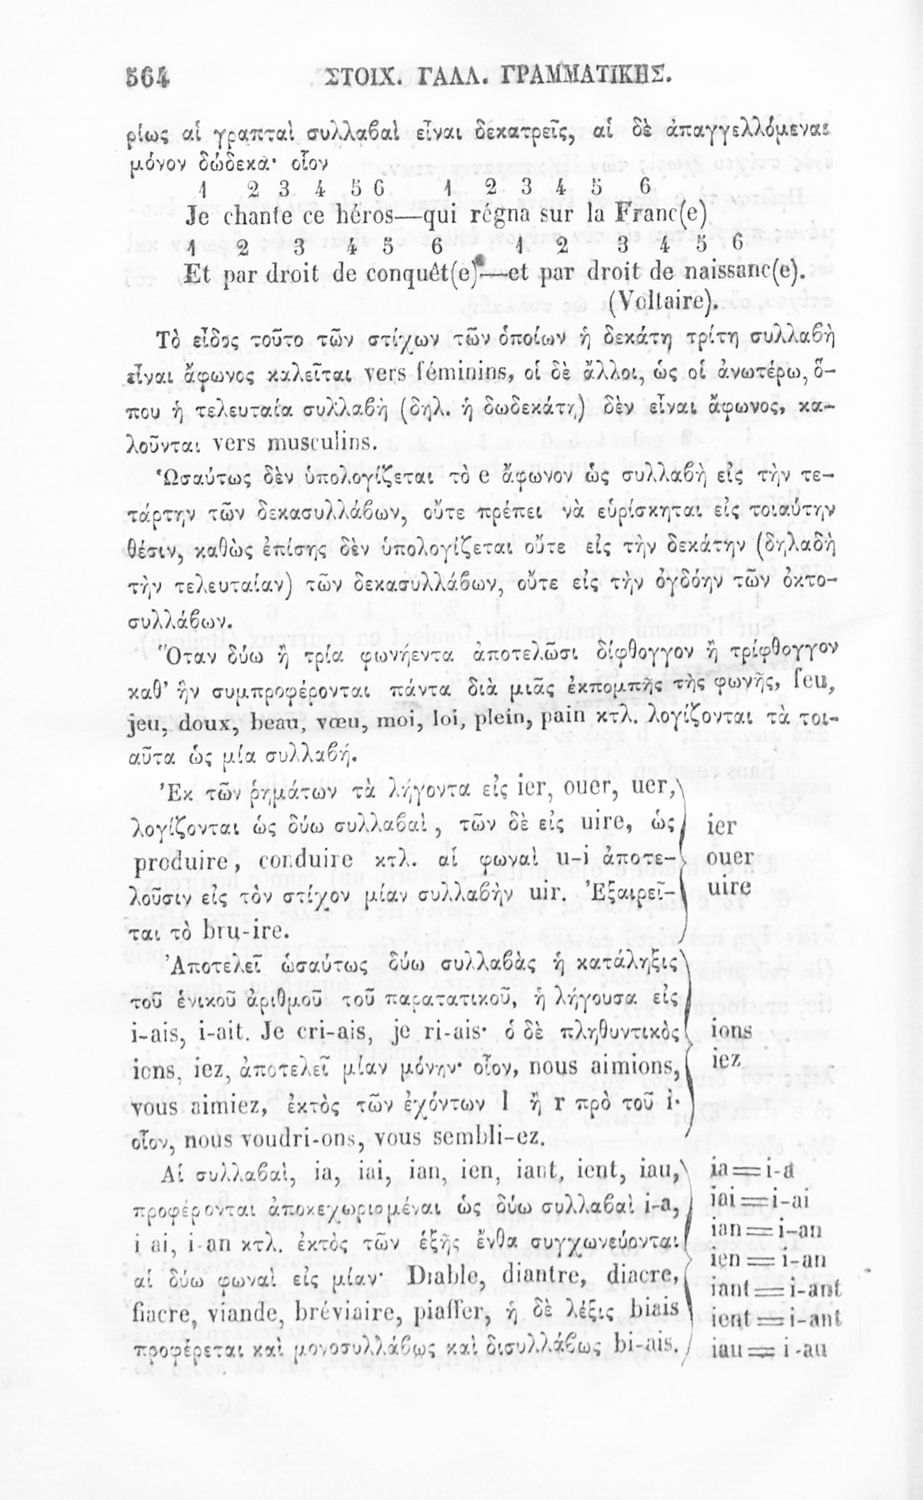 564 ΣΤΟΙΧ. ΓΑΛΛ. ΓΡΑΜΜΑΤΙΚΗΣ.
ρίως αἱ γραπταὶ συλλαβαὶ εἶναι δεκατρεῖς, αἱ δὲ ἀπαγγελλόμεναι
μόνον δώδεκα· οἷον
1 2 3 4 5 6 1 2 3 4 5 6
Je chante ce héros—qui régna sur la Franc(e)
1 2 3 4 5 6 1 2 3 4 5 6
Et par droit de conquêt(e)—et par droit de naissanc(e).
(Voltaire).
Τὸ εἶδος τοῦτο τῶν στίχων τῶν ὁποίων ἡ δεκάτη τρίτη συλλαβὴ
εἶναι ἄφωνος καλεῖται vers féminins, οἱ δὲ ἄλλοι, ὡς οἱ ἀνωτέρω, ὅ-
που ἡ τελευταία συλλαβὴ (δηλ. ἡ δωδεκάτη) δὲν εἶναι ἄφωνος, κα-
λοῦνται vers musculins.
Ὡσαύτως δὲν ὑπολογίζεται τὸ e ἄφωνον ὡς συλλαβὴ εἰς τὴν τε-
τάρτην τῶν δεκασυλλάβων, οὔτε πρέπει νὰ εὑρίσκηται εἰς τοιαύτην
θέσιν, καθὼς ἐπίσης δὲν ὑπολογίζεται οὔτε εἰς τὴν δεκάτην (δηλαδὴ
τὴν τελευταίαν) τῶν δεκασυλλάβων, οὔτε εἰς τὴν ὀγδόην τῶν ὀκτο-
συλλάβων.
Ὅταν δύω ἢ τρία φωνήεντα ἀποτελῶσι δίφθογγον ἢ τρίφθογγον
καθ’ ἣν συμπροφέρονται πάντα διὰ μιᾶς ἐκπομπῆς τῆς φωνῆς, feu,
jeu, doux, beau, vœu, moi, loi, plein, pain κτλ. λογίζονται τὰ τοι-
αῦτα ὡς μία συλλαβή.
Ἐκ τῶν ῥημάτων τὰ λήγοντα εἰς ier, ouer, uer,
λογίζονται ὡς δύω συλλαβαὶ, τῶν δὲ εἰς uire, ὡς ier
produire, conduire κτλ. αἱ φωναὶ u-i ἀποτε- ouer
λοῦσιν εἰς τὸν στίχον μίαν συλλαβὴν uir. Ἐξαιρεῖ- uire
ται τὸ bru-ire.
Ἀποτελεῖ ὡσαύτως δύω συλλαβὰς ἡ κατάληξις
τοῦ ἑνικοῦ ἀριθμοῦ τοῦ παρατατικοῦ, ἡ λήγουσα εἰς
i-ais, i-ait. Je cri-ais, je ri-ais· ὁ δὲ πληθυντικὸς ions
ions, iez, ἀποτελεῖ μίαν μόνην· οἷον, nous aimions, iez
vous aimiez, ἐκτὸς τῶν ἐχόντων l ἢ r πρὸ τοῦ i·
οἷον, nous voudri-ons, vous sembli-ez.
Αἱ συλλαβαὶ, ia, iai, ian, ien, iant, ient, iau, ia = i-a
προφέρονται ἀποκεχωρισμέναι ὡς δύω συλλαβαὶ i-a, iai = i-ai
i ai, i-an κτλ. ἐκτὸς τῶν ἑξῆς ἔνθα συγχωνεύονται ian = i-an
αἱ δύω φωναὶ εἰς μίαν· Diable, diantre, diacre, ien = i-an
fiacre, viande, bréviaire, piaffer, ἡ δὲ λέξις biais iant = i-ant
προφέρεται καὶ μονοσυλλάβως καὶ δισυλλάβως bi-ais. ient = i-ant
iau = i-au